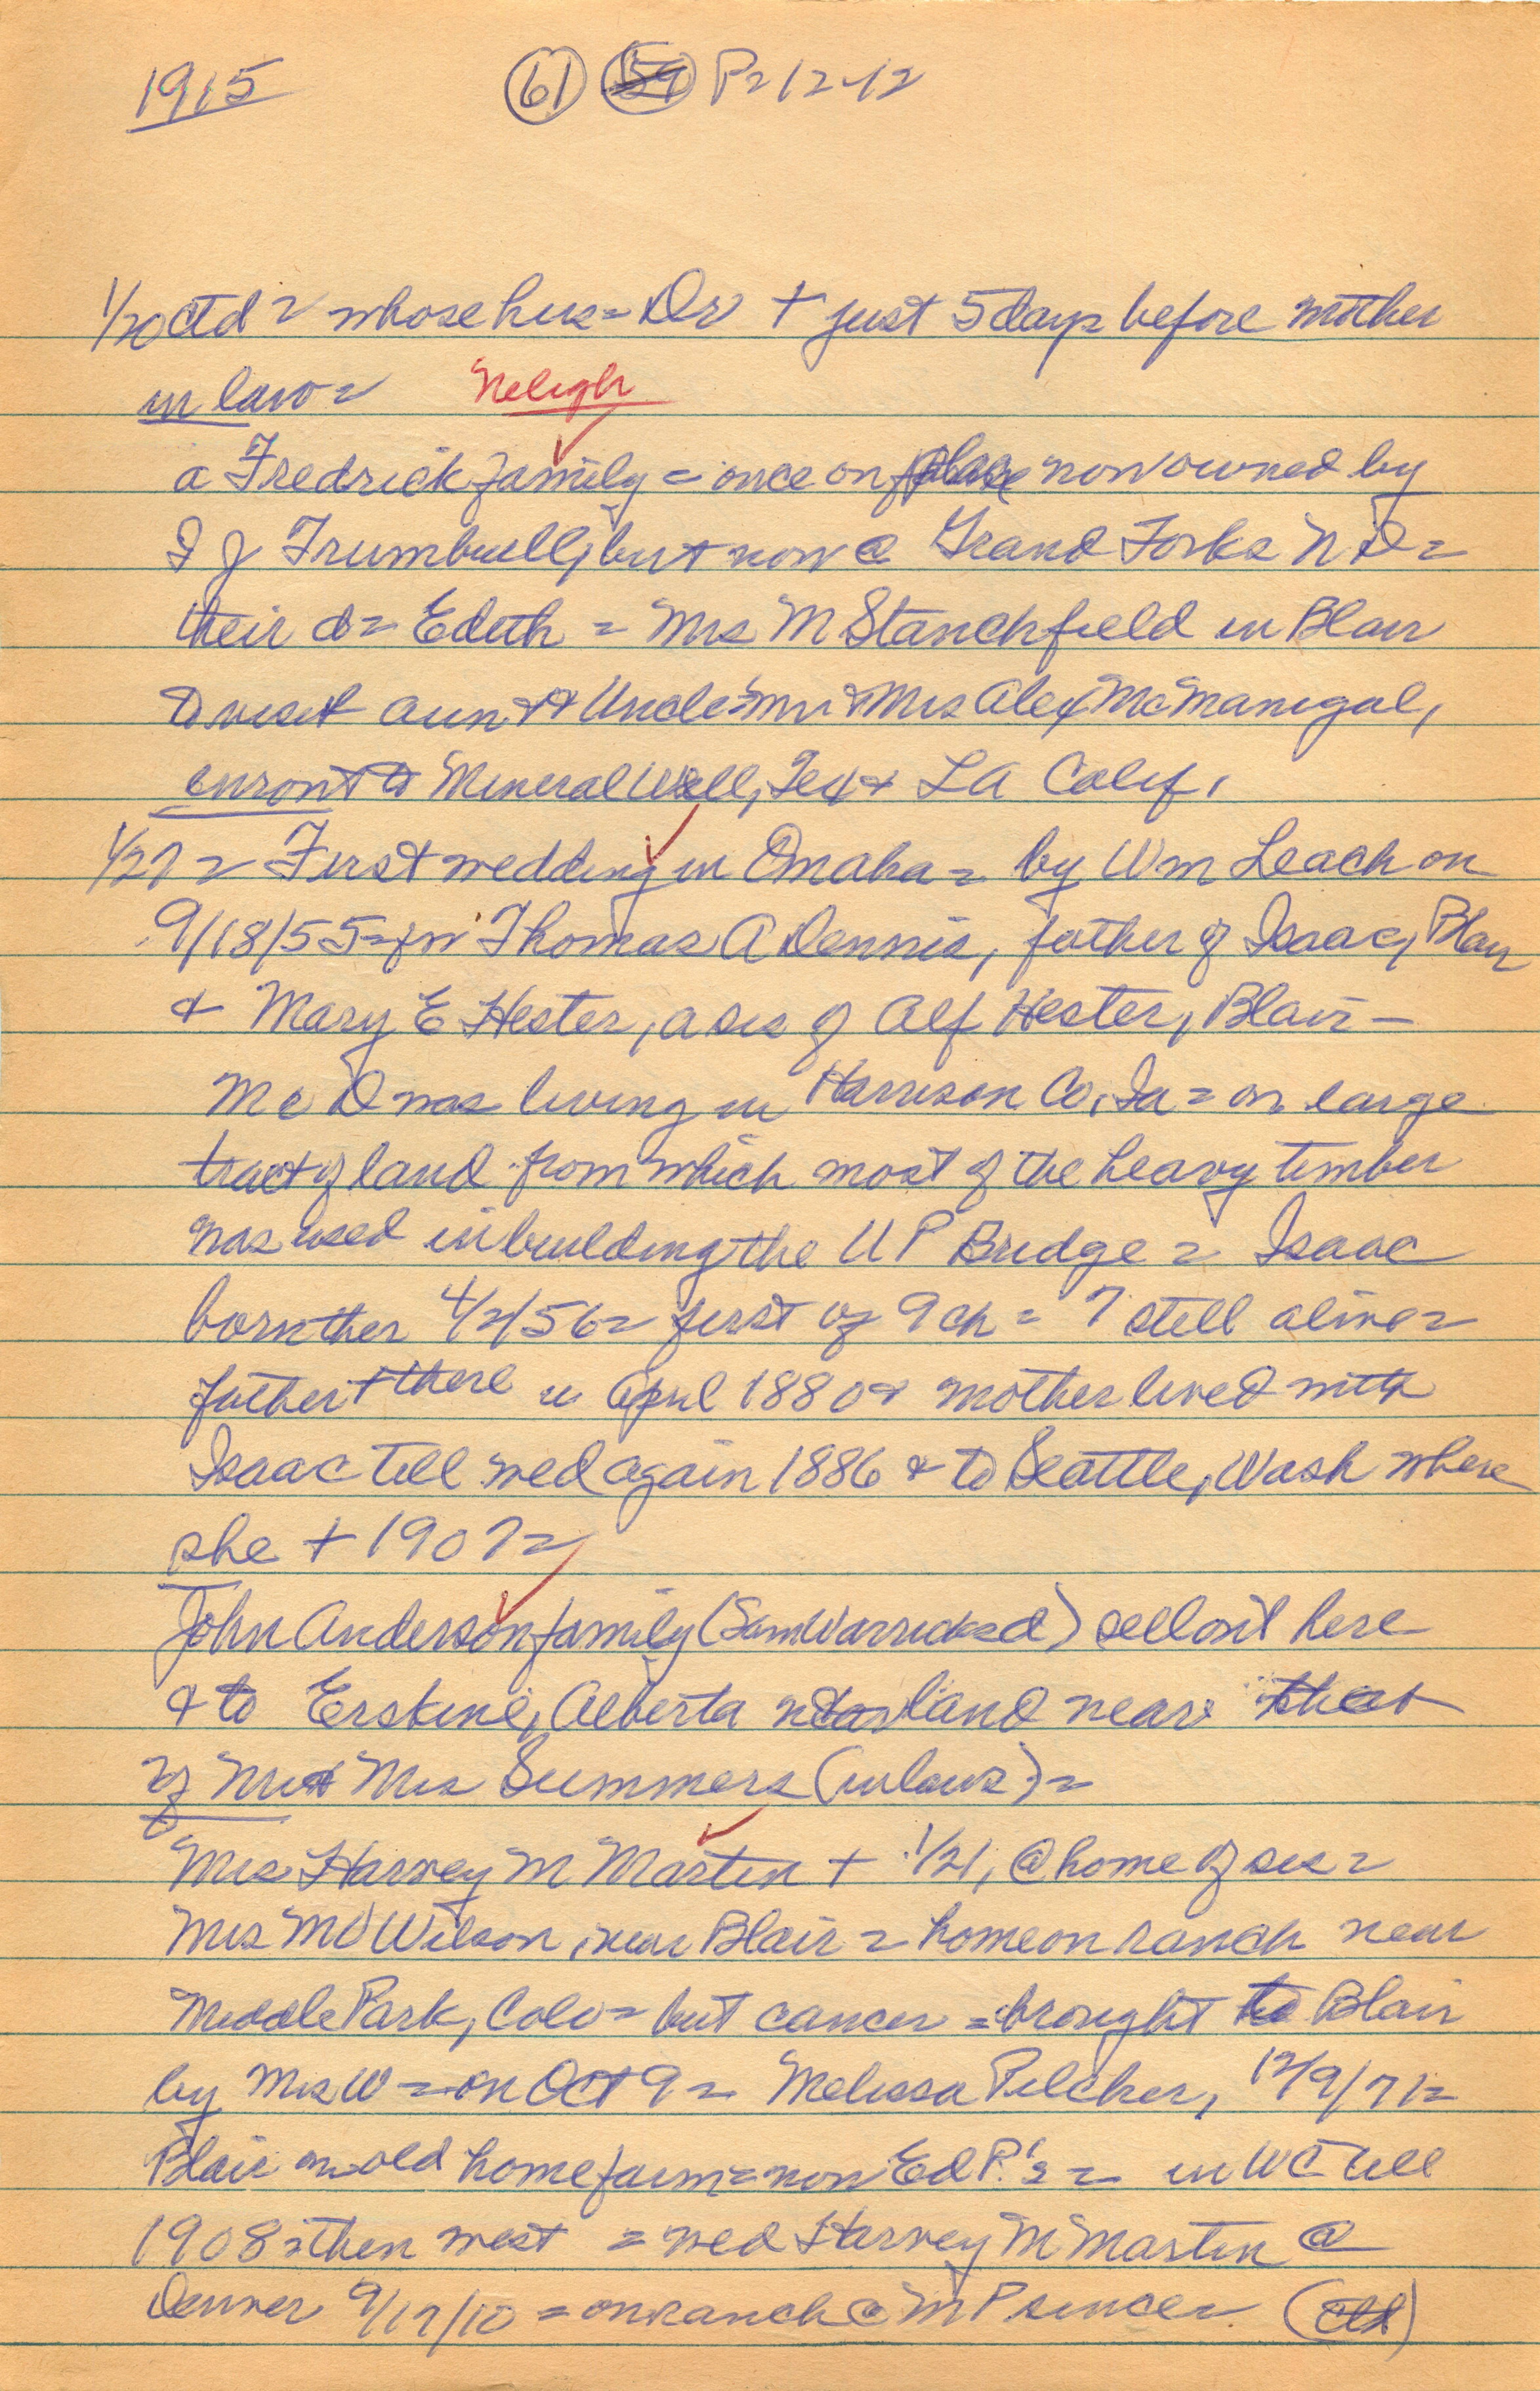 1915 (61) (59) P 2 12-12
1/20 ctd = whose hus = Dr + just 5 days before mother
in law =
Neligh
a Fredrick family = once on place now owned by
I J Trumbull, but now @ Grand Forks N D =
their d = Edith = Mrs M Stanchfield in Blair
to visit aunt & Uncle = Mr & Mrs Alex McManigal,
enrout to Mineral Well, Tex & LA Calif.
1/27 = First wedding in Omaha = by Wm Leach on
9/18/55 = for Thomas A Dennis, father of Isaac, Blair
& Mary E Hester, a sis of Alf Hester, Blair -
Mr D was living in Harrison Co, Ia = on large
tract of land from which most of the heavy timber
was used in building the U P Bridge = Isaac
born ther 4/2/56 = first of 9 ch = 7 still alive =
father + there in April 1880 & mother lived with
Isaac till wed again 1886 & to Seattle, Wash where
she + 1907 =
John Anderson family (Sam Warrick d) sell out here
& to Erskine, Alberta land near that
of Mr & Mrs Summers (inlaws) =
Mrs Harvey M Martin + 1/21, @ home of sis =
Mrs M D Wilson, near Blair = home on ranch near
Middle Park, Colo = but cancer = brought to Blair
by Mrs W = on Oct 9 = Melissa Pilcher, 12/9/71 =
Blair on old home farm = now Ed P.'s = in WC till
1908 = then west = wed Harvey M Martin @
Denver 9/17/10 = on ranch @ M P since = (ctd)